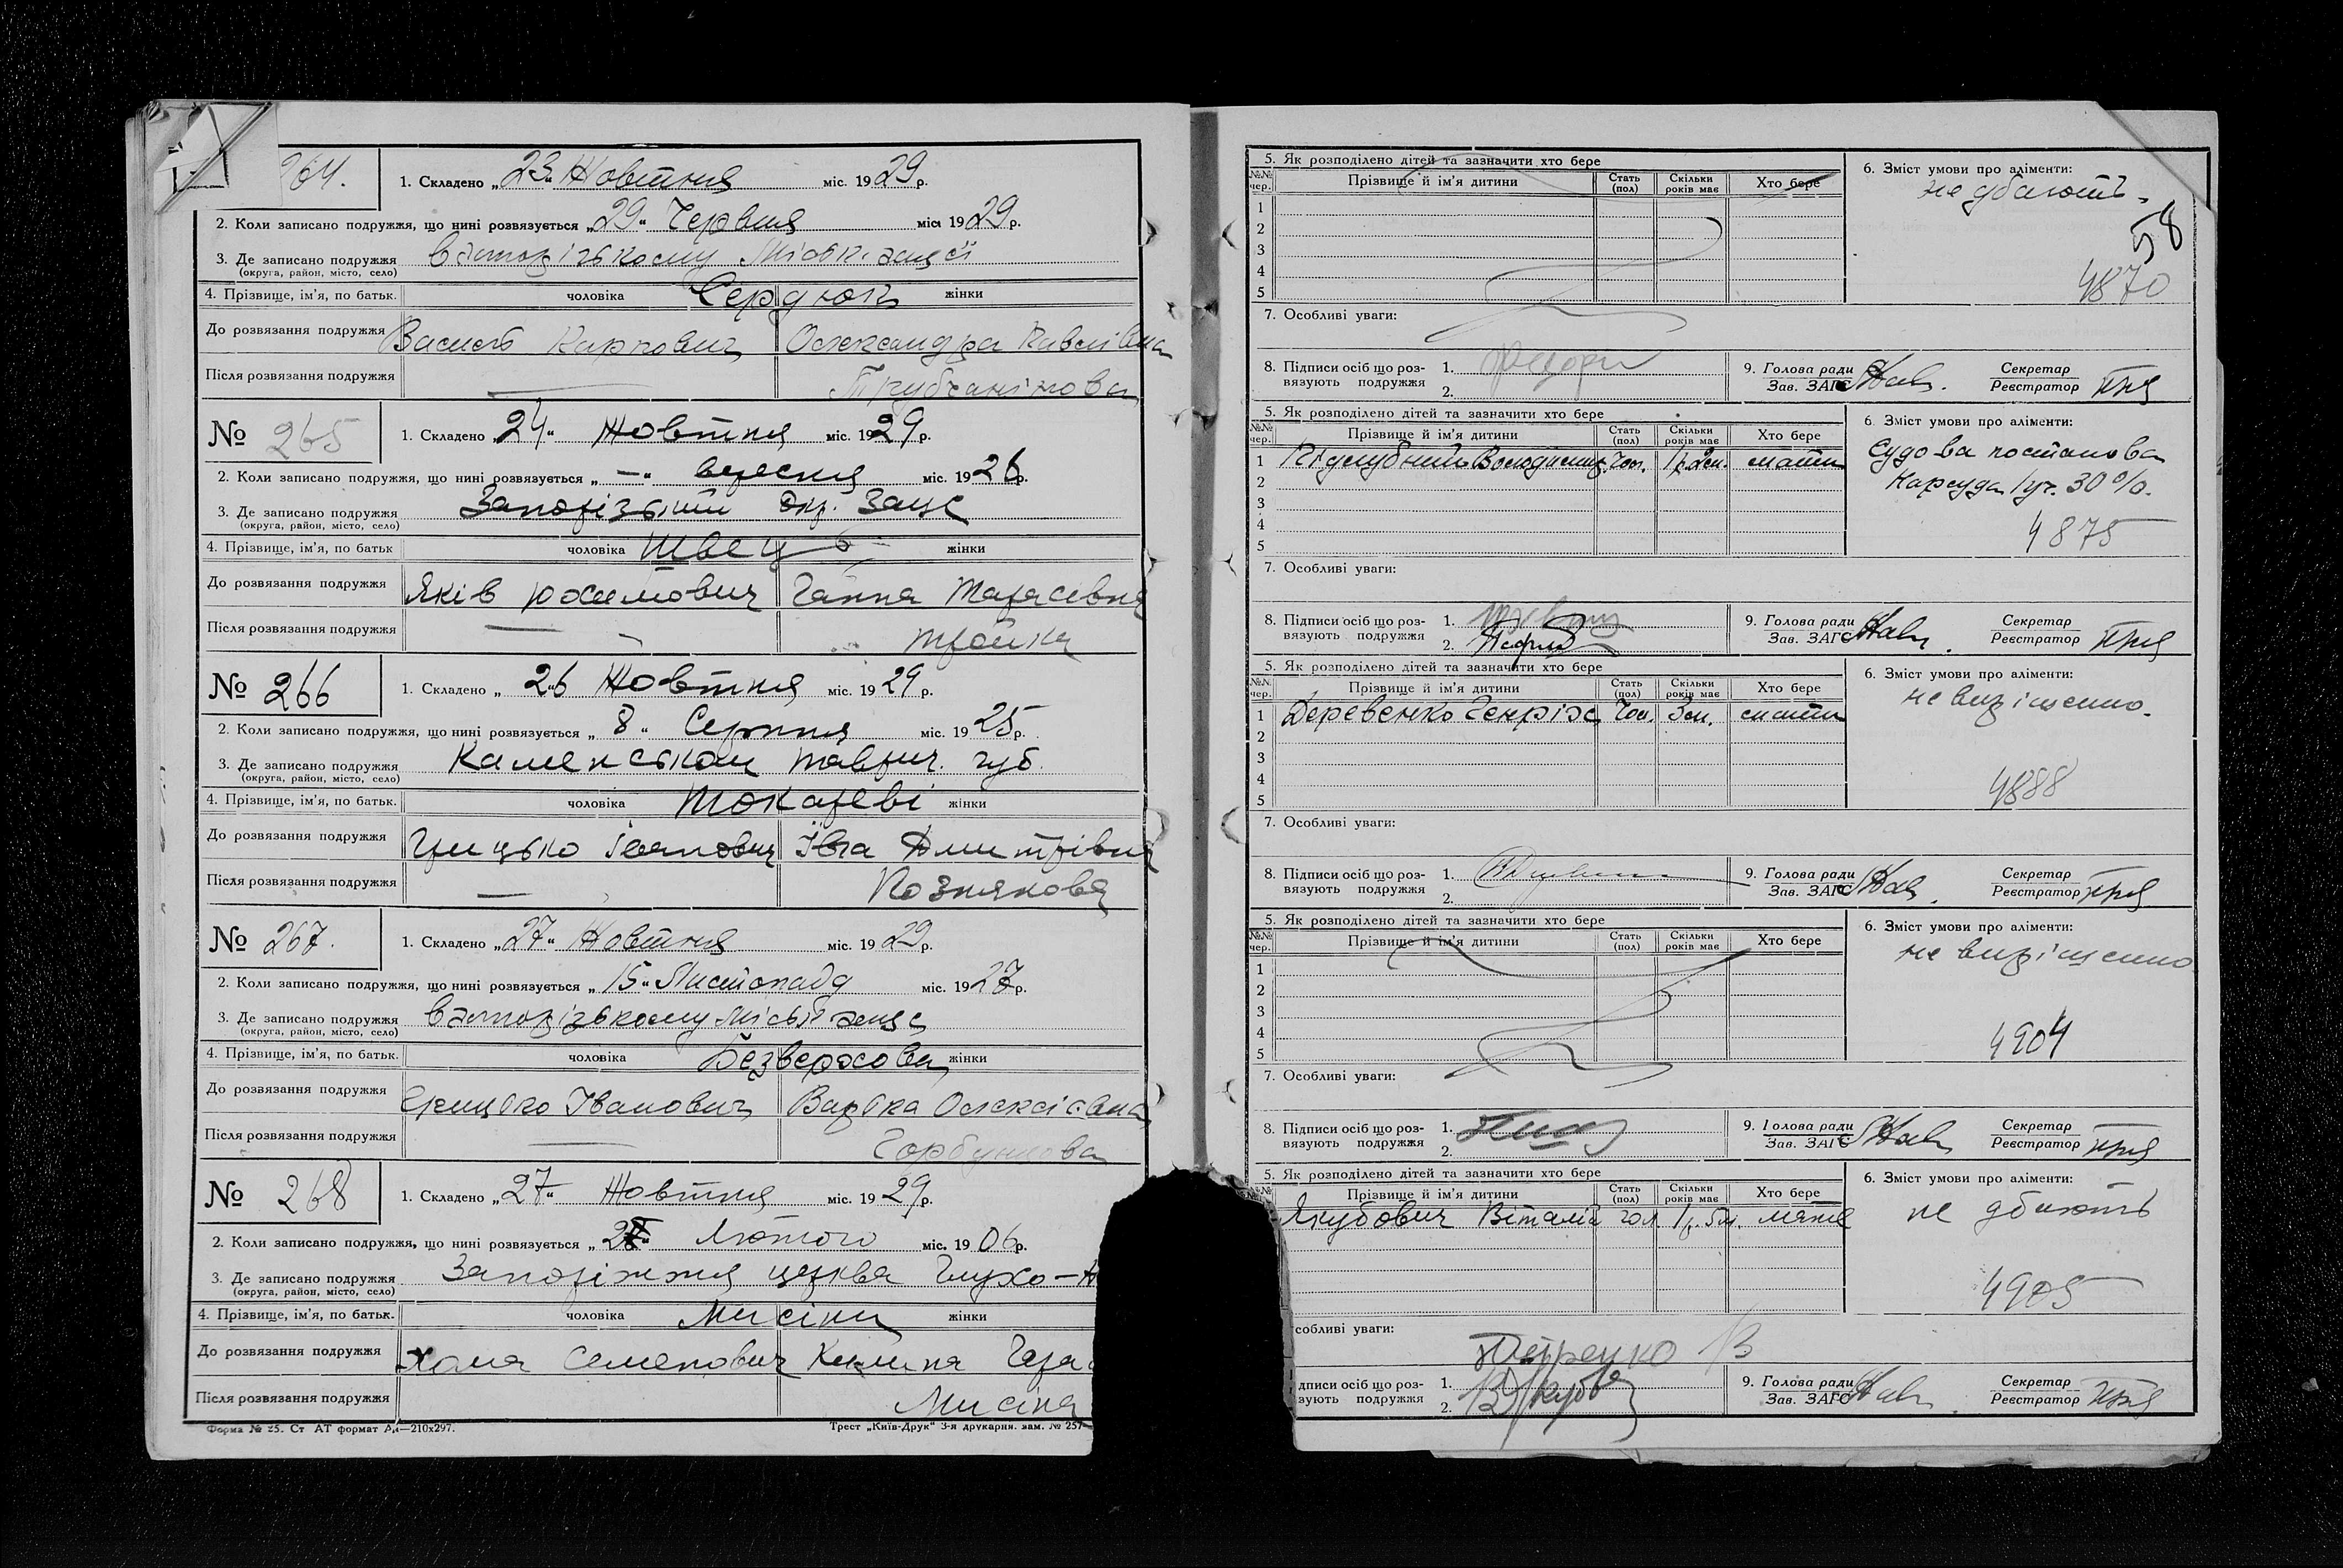 264.
1. Складено „23“ Жовтня міс. 1929 р.
2. Коли записано подружжя, що нині розвязується „29“ Червня міс. 1929 р.
3. Де записано подружжя
(округа, район, місто, село)
4. Прізвище, ім'я, по батьк. чоловіка Сердюк жінки
До розвязання подружжя Василь Карпович Олександра Павлівна
Після розвязання подружжя — Трубчанінова
№ 265
1. Складено 24“ Жовтня міс. 1929 р.
2. Коли записано подружжя, що нині розвязується „—“ вересня міс. 1926 р.
3. Де записано подружжя Запорізький Окр. Загс
(округа, район, місто, село)
4. Прізвище, ім'я, по батьк чоловіка Швець жінки
До розвязання подружжя Яків Юхимович Ганна Тарасівна
Після розвязання подружжя —
№ 266
1. Складено „26“ Жовтня міс. 1929 р.
2. Коли записано подружжя, що нині розвязується „8“ Серпня міс. 1925 р.
3. Де записано подружжя Каменськом Таврич. губ.
(округа, район, місто, село)
4. Прізвище, ім'я, по батьк. чоловіка Токареві жінки
До розвязання подружжя Грицько Іванович Івга Дмитрівна
Після розвязання подружжя — Познякова
№ 267.
1. Складено „27“ Жовтня міс. 1929 р.
2. Коли записано подружжя, що нині розвязується „15“ Листопада міс. 1927 р.
3. Де записано подружжя
(округа, район, місто, село)
4. Прізвище, ім'я, по батьк. чоловіка Безверхова жінки
До розвязання подружжя Грицько Іванович Варька Олексіївна
Після розвязання подружжя — Горбункова
№ 268
1. Складено „27“ Жовтня міс. 1929 р.
2. Коли записано подружжя, що нині розвязується Лютого міс. 1906 р.
3. Де записано подружжя Запоріжжя церква Глухо-
(округа, район, місто, село)
4. Прізвище, ім'я, по батьк. чоловіка Мисіни жінки
До розвязання подружжя Хома Семенович Килина
Після розвязання подружжя Мисіна
Форма № 25. Ст АТ формат А4—210х297.
Трест „Київ-Друк“ 3-я друкарня. зам. № 257
5. Як розподілено дітей та зазначити хто бере
№№ чер. Прізвище й ім'я дитини Стать (пол) Скільки років має Хто бере
1
2
3
4
5
6. Зміст умови про аліменти:
не дбають.
58
4870
7. Особливі уваги:
8. Підписи осіб що роз-
вязують подружжя
1.
2.
9. Голова ради
Зав. ЗАГС
Секретар
Реєстратор
5. Як розподілено дітей та зазначити хто бере
№№ чер. Прізвище й ім'я дитини Стать (пол) Скільки років має Хто бере
1 Піддубний Володимир Чол. 1р.2м. мати
2
3
4
5
6. Зміст умови про аліменти:
Судова постанова
Нарсуда 1 уч. 30%.
4875
7. Особливі уваги:
8. Підписи осіб що роз-
вязують подружжя
1.
2.
9. Голова ради
Зав. ЗАГС
Секретар
Реєстратор
5. Як розподілено дітей та зазначити хто бере
№№ чер. Прізвище й ім'я дитини Стать (пол) Скільки років має Хто бере
1 Деревенко Генріх Чол. 3м. мати
2
3
4
5
6. Зміст умови про аліменти:
не вирішено.
4888
7. Особливі уваги:
8. Підписи осіб що роз-
вязують подружжя
1.
2.
9. Голова ради
Зав. ЗАГС
Секретар
Реєстратор
5. Як розподілено дітей та зазначити хто бере
№№ чер. Прізвище й ім'я дитини Стать (пол) Скільки років має Хто бере
1
2
3
4
5
6. Зміст умови про аліменти:
не вирішено
4904
7. Особливі уваги:
8. Підписи осіб що роз-
вязують подружжя
1.
2.
9. Голова ради
Зав. ЗАГС
Секретар
Реєстратор
5. Як розподілено дітей та зазначити хто бере
№№ Прізвище й ім'я дитини Стать (пол) Скільки років має Хто бере
Якубович Віталій чол 1р. 5м. мати
6. Зміст умови про аліменти:
не дбають
4905
собливі уваги:
дписи осіб що роз-
зують подружжя
1.
2.
9. Голова ради
Зав. ЗАГС
Секретар
Реєстратор